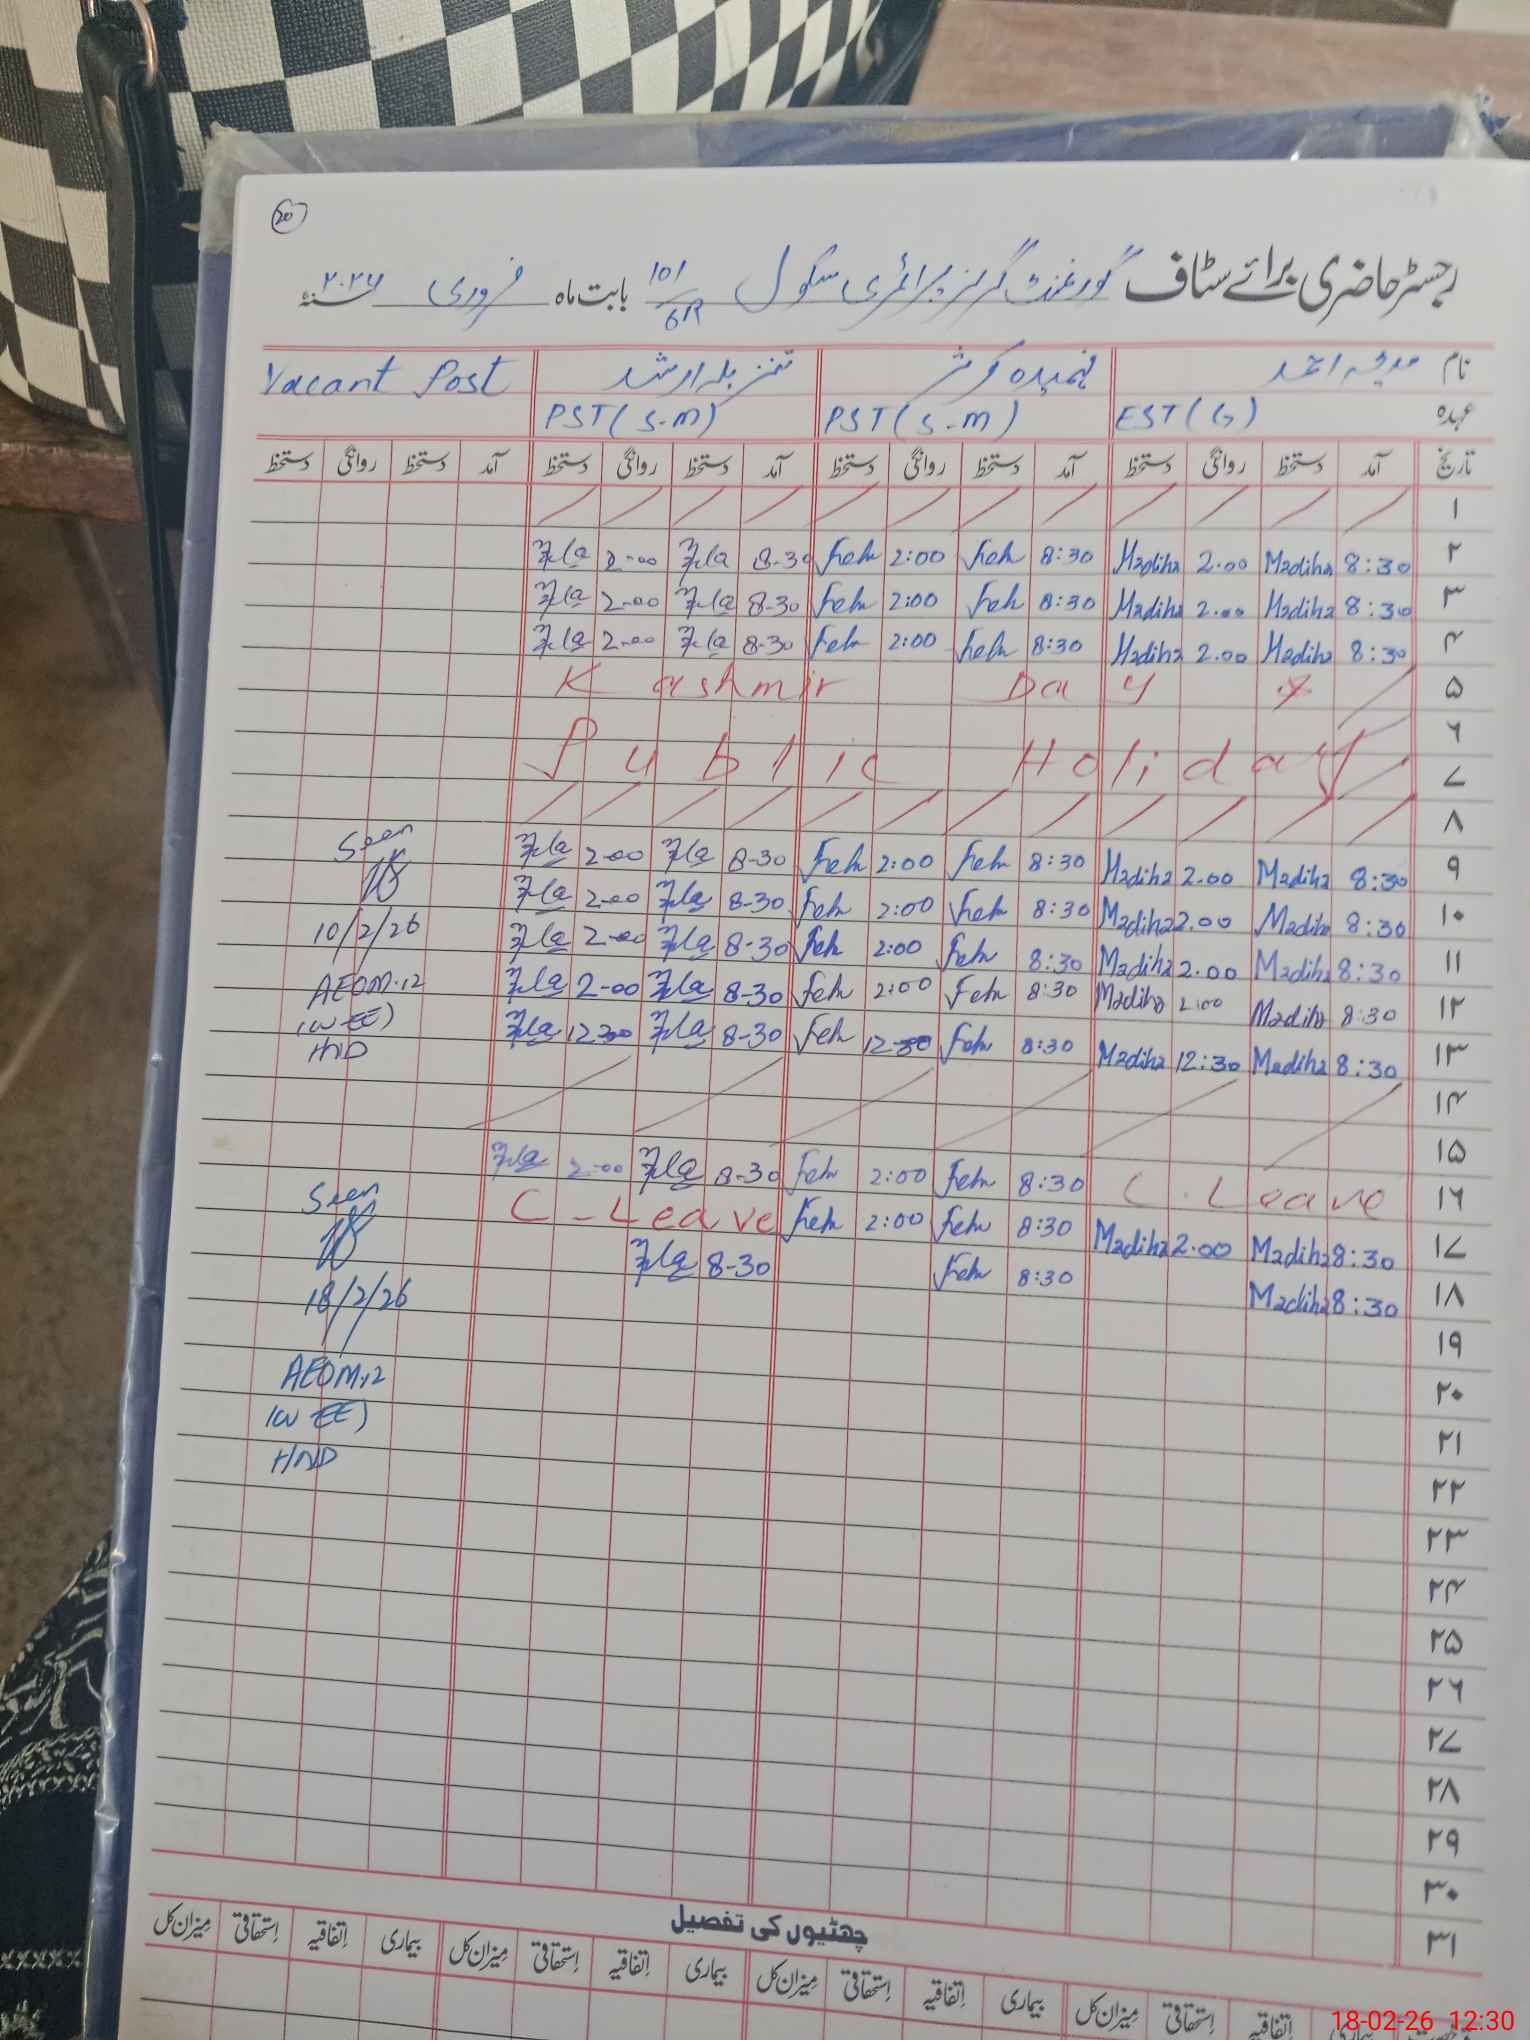 20
رجسٹر حاضری برائے سٹاف گورنمنٹ گرلز پرائمری سکول 101/6R بابت ماہ فروری ۲۰۲۶
نام مدیحہ احمد فہمیدہ کوثر تنزیلہ ارشد Vacant Post
عہدہ EST (G) PST (S-M) PST (S-M)
تاریخ آمد دستخط روانگی دستخط آمد دستخط روانگی دستخط آمد دستخط روانگی دستخط آمد دستخط روانگی دستخط
۱
۲ 8:30 Madiha 2.00 Madiha 8:30 Feh 2:00 Feh 8-30 2-00
۳ 8:30 Madiha 2.00 Madiha 8:30 Feh 2:00 Feh 8-30 2-00
۴ 8:30 Madiha 2.00 Madiha 8:30 Feh 2:00 Feh 8-30 2-00
۵ Kashmir Day
۶
۷ Public Holiday
۸
۹ 8:30 Madiha 2.00 Madiha 8:30 Feh 2:00 Feh 8-30 2-00 Seen
۱۰ 8:30 Madiha 2.00 Madiha 8:30 Feh 2:00 Feh 8-30 2-00
۱۱ 8:30 Madiha 2.00 Madiha 8:30 Feh 2:00 Feh 8-30 2-00 10/2/26
۱۲ 8:30 Madiha 2:00 Madiha 8:30 Feh 2:00 Feh 8-30 2-00 AEOM-12
(WEE)
۱۳ 8:30 Madiha 12:30 Madiha 8:30 Feh 12-30 Feh 8-30 12-30 HND
۱۴
۱۵
۱۶ C. Leave 8:30 Feh 2:00 Feh 8-30 2-00
۱۷ 8:30 Madiha 2.00 Madiha 8:30 Feh 2:00 Feh C-Leave Seen
۱۸ 8:30 Madiha 8:30 Feh 8-30
18/2/26
۱۹
AEOM-12
۲۰
(WEE)
۲۱
HND
۲۲
۲۳
۲۴
۲۵
۲۶
۲۷
۲۸
۲۹
۳۰
۳۱
چھٹیوں کی تفصیل
اتفاقیہ استحقاقی میزان کل بیماری اتفاقیہ استحقاقی میزان کل بیماری اتفاقیہ استحقاقی میزان کل بیماری اتفاقیہ استحقاقی میزان کل
18-02-26 12:30